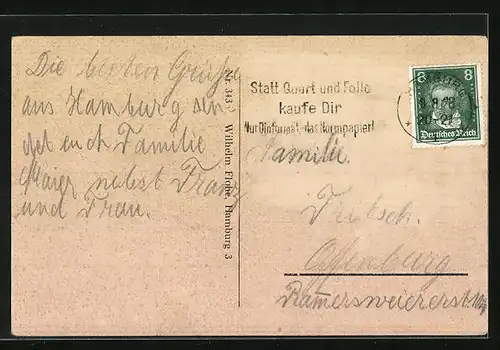 Die besten Grüße
aus Hamburg sen
det euch Familie
Maier nebst Franz
und Frau.
Nr. 343 Wilhelm Flohe, Hamburg 3
Statt Quart und Folio
kaufe Dir
Nur Dinformat, das Normpapier!
8 8
8.8.28
Deutsches Reich
Familie
Offenburg
Rammersweiererstr.